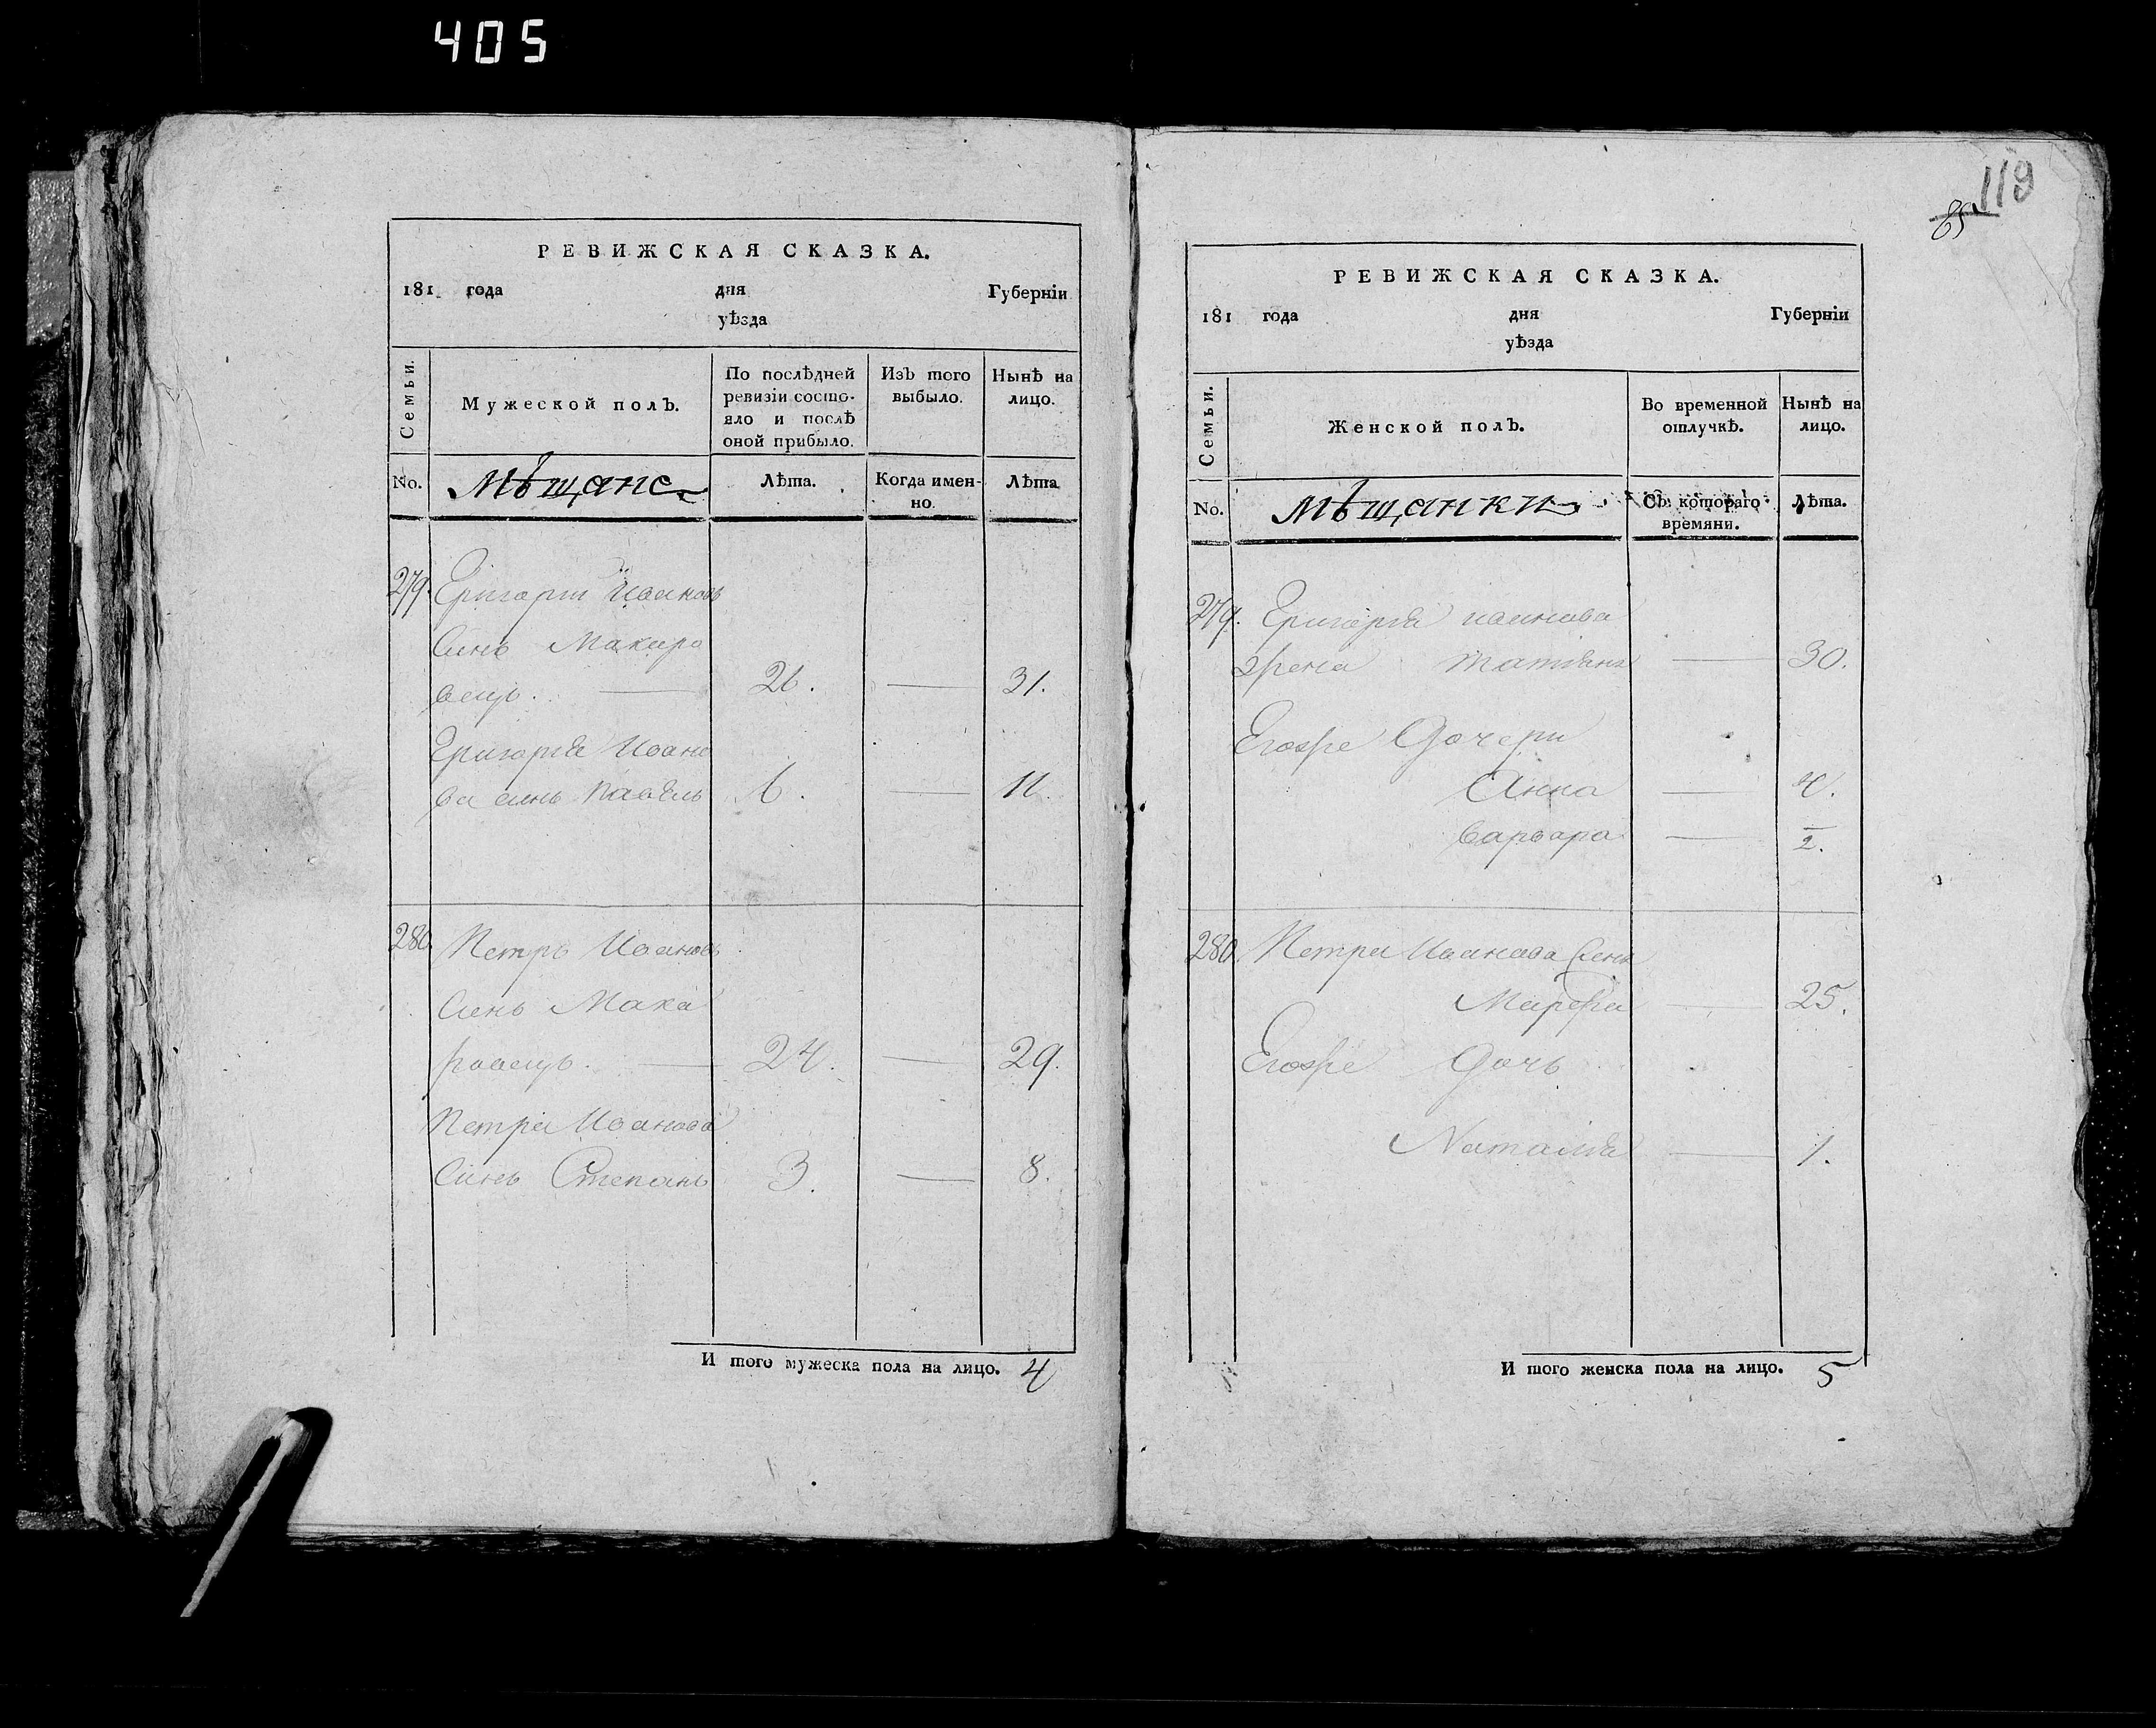 405
РЕВИЖСКАЯ СКАЗКА.
181 года дня Губерніи
уѣзда
Семьи.
Мужеской полъ.
По послѣдней ревизіи состояло и послѣ оной прибыло.
Изъ того выбыло.
Нынѣ на лицо.
No.
Мѣщане
Лѣта.
Когда именно.
Лѣта
279. Григорій Ивановъ
Синъ Макаро
вецъ. — 26. — 31.
Григорія Ивано
ва синъ Павелъ 6. — 11.
280. Петръ Ивановъ
Синъ Мака
ровецъ. — 24. — 29.
Петра Иванова
Синъ Степанъ 3. — 8.
И того мужеска пола на лицо. 4
119
РЕВИЖСКАЯ СКАЗКА.
181 года дня Губерніи
уѣзда
Семьи.
Женской полъ.
Во временной отлучкѣ.
Нынѣ на лицо.
No.
Мѣщанки
Съ котораго времяни.
Лѣта.
279. Григорія Иванова
жена Татіяна — 30.
Егоже Дочери
Анна — 4.
Варвара — 2.
280. Петра Иванова
Марфа — 25.
Егоже Дочь
Наталія — 1.
И того женска пола на лицо. 5